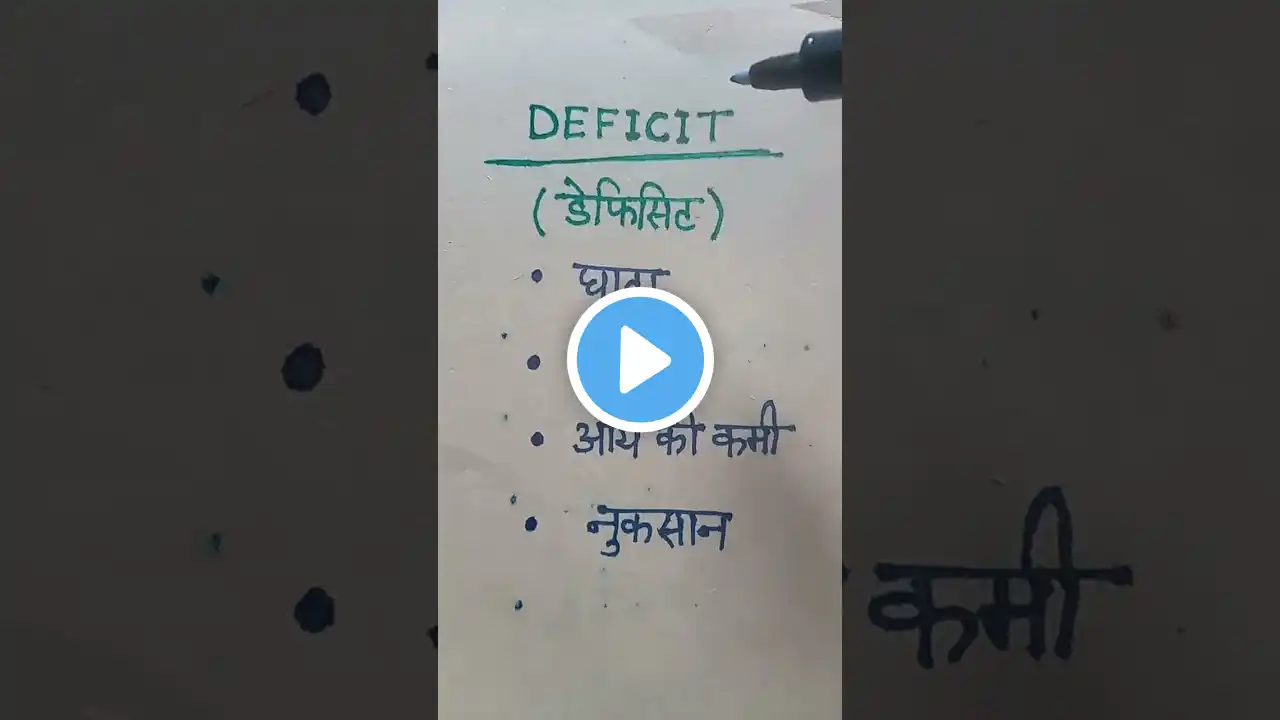 DEFICIT
(डेफिसिट)
• घाटा
•
• आय की कमी
• नुकसान
कमी